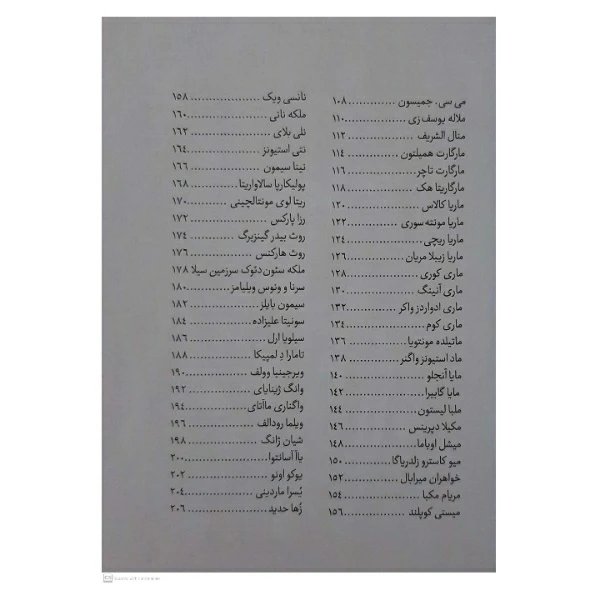 می سی. جمیسون .............. ۱۰۸
ملاله یوسف زی ............... ۱۱۰
منال الشریف ................. ۱۱۲
مارگارت همیلتون ............ ۱۱۴
مارگارت تاچر ................ ۱۱۶
مارگاریتا هک ................ ۱۱۸
ماریا کالاس .................. ۱۲۰
ماریا مونته سوری ............ ۱۲۲
ماریا ریچی ................... ۱۲۴
ماریا زیبلا مریان ............. ۱۲۶
ماری کوری .................. ۱۲۸
ماری آنینگ ................. ۱۳۰
ماری ادواردز واکر ............ ۱۳۲
ماری کوم ................... ۱۳۴
ماتیلده مونتویا .............. ۱۳۶
ماد استیونز واگنر ............ ۱۳۸
مایا آنجلو ................... ۱۴۰
مایا گابیرا ................... ۱۴۲
ملبا لیستون ................ ۱۴۴
مکیلا دپرینس .............. ۱۴۶
میشل اوباما ................ ۱۴۸
میو کاسترو زلدریاگا ......... ۱۵۰
خواهران میرابال ............ ۱۵۲
مریام مکبا .................. ۱۵۴
میستی کوپلند ............. ۱۵۶
نانسی ویک .................... ۱۵۸
ملکه نانی .................... ۱۶۰
نلی بلای ..................... ۱۶۲
نتی استیونز .................. ۱۶۴
نینا سیمون .................. ۱۶۶
پولیکارپا سالاواریتا ............ ۱۶۸
ریتا لوی مونتالچینی .......... ۱۷۰
رزا پارکس .................... ۱۷۲
روث بیدر گینزبرگ ........... ۱۷۴
روث هارکنس ................ ۱۷۶
ملکه سئون‌دئوک سرزمین سیلا ۱۷۸
سرنا و ونوس ویلیامز .......... ۱۸۰
سیمون بایلز .................. ۱۸۲
سونیتا علیزاده ................ ۱۸۴
سیلویا ارل .................... ۱۸۶
تامارا دِ لمپیکا ................ ۱۸۸
ویرجینیا وولف ................ ۱۹۰
وانگ ژینایای .................. ۱۹۲
واگناری ماآتای ................ ۱۹۴
ویلما رودالف ................. ۱۹۶
شیان ژانگ ................... ۱۹۸
یاآ آسانتوا ..................... ۲۰۰
یوکو اونو ..................... ۲۰۲
یُسرا ماردینی ................. ۲۰۴
زُها حدید .................... ۲۰۶